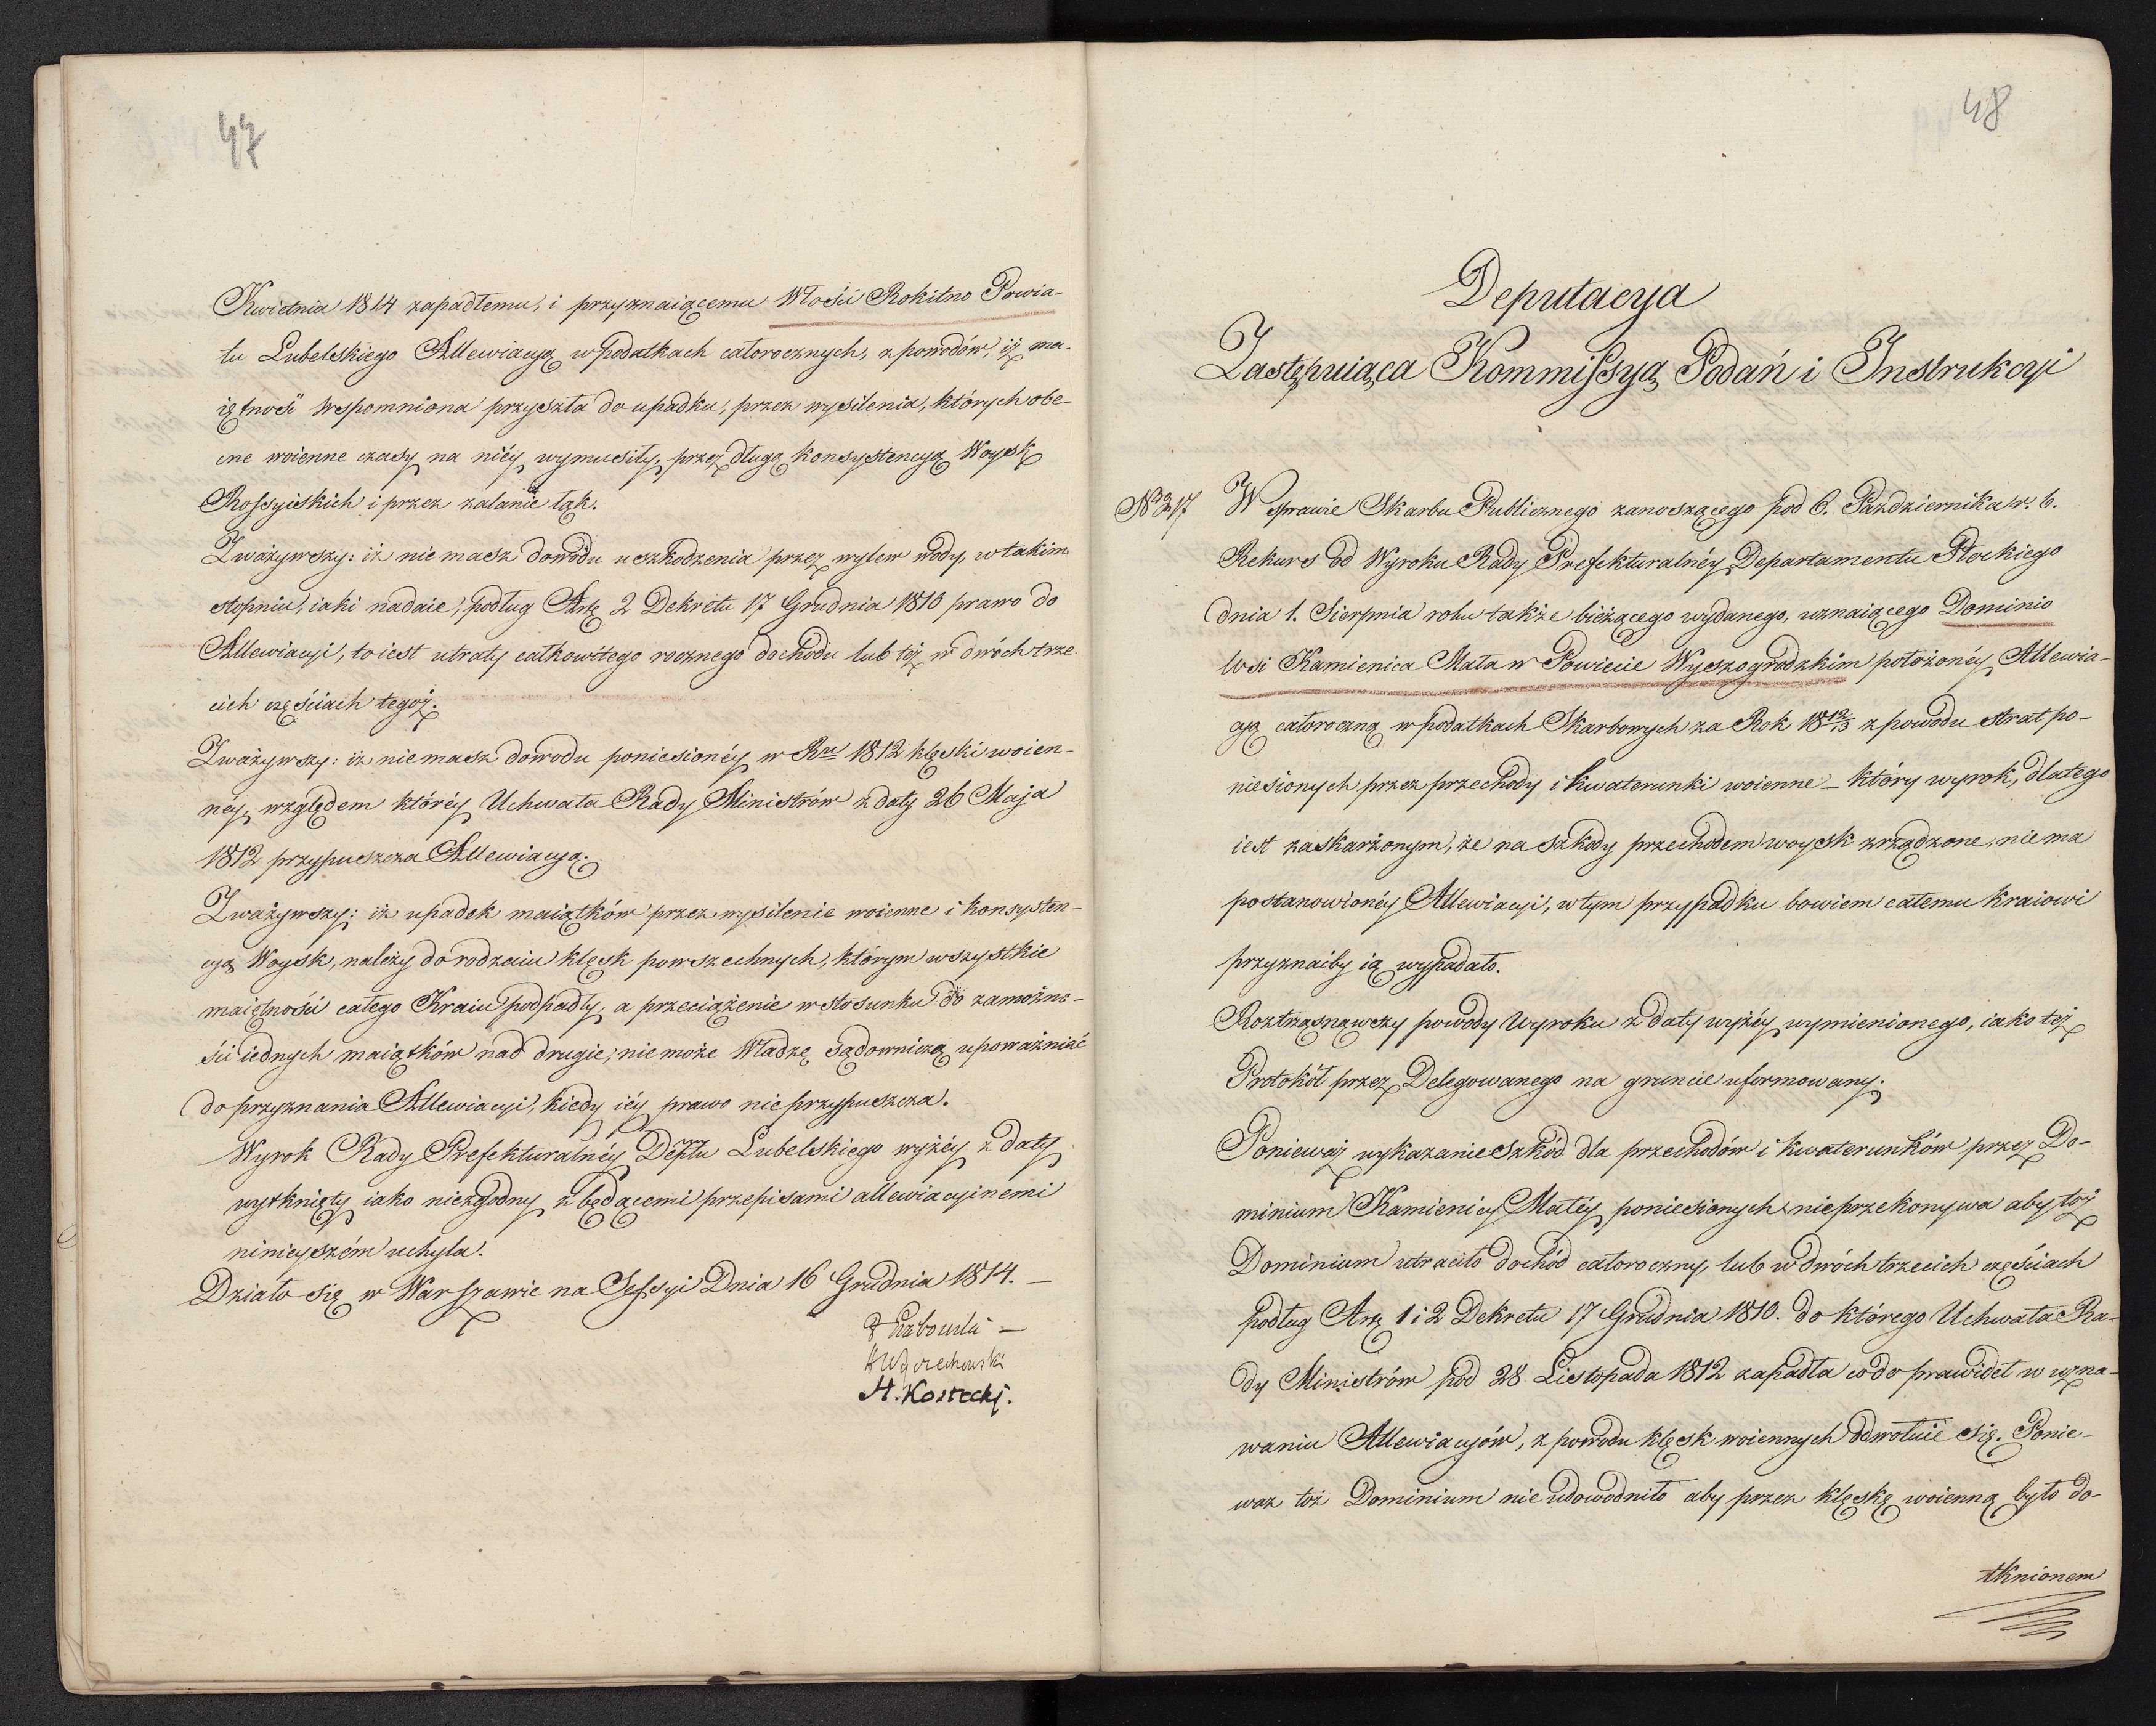 47
Kwietnia 1814 zapadłemu, i przyznaiącemu Włości Rokitno Powia-
tu Lubelskiego Allewiacyą w podatkach całorocznych, z powodów, iż ma-
iętność wspomniona przyszła do upadku, przez wysilenia, których obe-
cne woienne czasy na niéy wymusiły, przez długą konsystencyą Woysk
Rossyiskich i przez zalanie łąk.
Zważywszy: iż nie masz dowodu uszkodzenia przez wylew wody, w takim
stopniu, iaki nadaie, podług Art 2 Dekretu 17 Grudnia 1810 prawo do
Allewiacyi, to iest utraty całkowitego rocznego dochodu lub też w dwóch trze-
cich częściach tegoż.
Zważywszy: iż nie masz dowodu poniesionéy w Ru 1812 klęski woien-
néy, względem któréy Uchwała Rady Ministrów z daty 26 Maja
1812 przypuszcza Allewiacyą.
Zważywszy: iż upadek maiątków przez wysilenie woienne i konsysten-
cyą Woysk, należy do rodzaiu klęsk powszechnych, którym wszystkie
maiętności całego Kraiu podpadły, a przeciążenie w stosunku do zamożno-
ści iednych maiątków nad drugie, nie może Władzę Sądowniczą upoważniać
do przyznania Allewiacyi, kiedy iéy prawo nie przypuszcza.
Wyrok Rady Prefekturalnéy Deptu Lubelskiego wyżéy z daty
wytknięty iako niezgodny z będącemi przepisami allewiacyinemi
ninieyszém uchyla.
Działo się w Warszawie na Sessyi Dnia 16 Grudnia 1814. —
H. Kostecki.
48
Deputacya
Zastępuiąca Kommissyą Podań i Instrukcyi
No 317 W sprawie Skarbu Publicznego zanoszącego pod 6. Października r. b.
Rekurs od Wyroku Rady Prefekturalnéy Departamentu Płockiego
dnia 1. Sierpnia roku także bieżącego wydanego, uznaiącego Dominio
Wsi Kamienica Mała w Powiecie Wyszogrodzkim położonéy Allewia-
cyą całoroczną w podatkach Skarbowych za Rok 1812/13 z powodu strat po-
niesionych przez przechody i kwaterunki woienne – który wyrok, dlatego
iest zaskarżonym, że na szkody przechodem woysk zrządzone, nie ma
postanowionéy Allewiacyi, w tym przypadku bowiem całemu kraiowi
przyznaiby ią wypadało.
Roztrząsnąwszy powody Wyroku z daty wyżéy wymienionego, iako też
Protokół przez Delegowanego na gruncie uformowany.
Ponieważ wykazanie szkód dla przechodów i kwaterunków przez Do-
minium Kamienicy Małéy poniesionych nie przekonywa aby toż
Dominium utraciło dochód całoroczny, lub w dwóch trzecich częściach
podług Art 1 i 2 Dekretu 17 Grudnia 1810. do którego Uchwała Ra-
dy Ministrów pod 28 Listopada 1812 zapadła co do prawideł w uzna-
waniu Allewiacyów, z powodu klęsk woiennych odwołuie się. Ponie-
waz toż Dominium nie udowodniło aby przez klęskę woienną było do-
tknionem